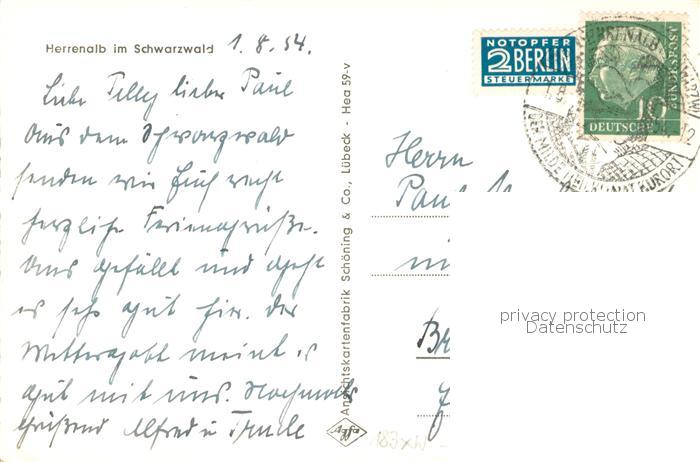 Herrenalb im Schwarzwald 1.8.54.
Liebe Tilly lieber Paul
Aus dem Schwarzwald
senden wir Euch recht
herzliche Feriengrüße.
Uns gefällt und geht
es sehr gut hier. der
Wettergott meint es
gut mit uns. Nochmals
Grüßend Alfred u Trude
Ansichtskartenfabrik Schöning & Co., Lübeck - Hea 59-v
Agfa
NOTOPFER
2 BERLIN
STEUERMARKE
HERRENALB
DER MILDE HEILKLIMAT KURORT
10
DEUTSCHE
BUNDESPOST
Herrn
Paul
privacy protection
Datenschutz